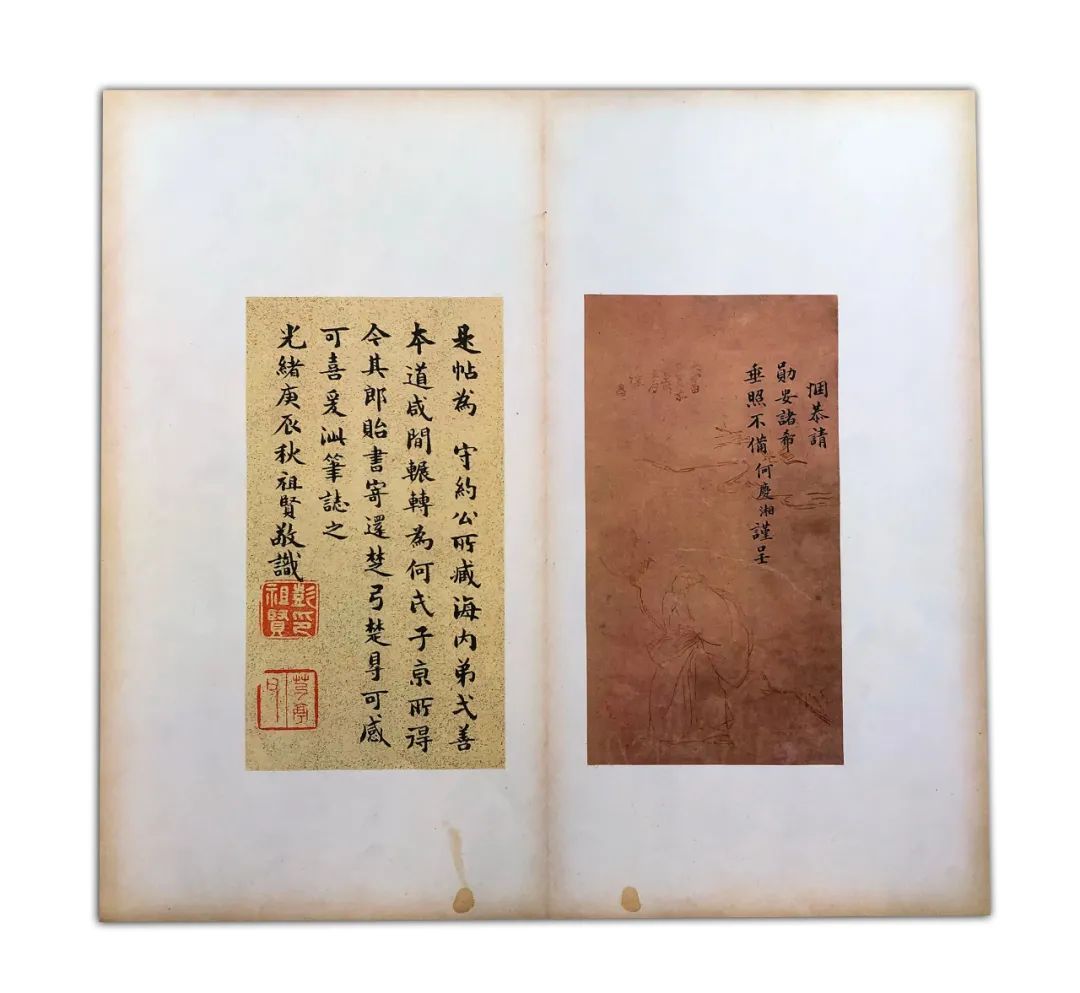 悃恭請
勛安諸希
垂照不備 何慶湘謹呈
是帖為 守約公所臧海內弟弌善
本道咸間輾轉為何氏子京所得
今其郎貽書寄還楚弓楚得可感
可喜爰泚筆誌之
光緒庚辰秋祖賢敬識
彭祖賢印